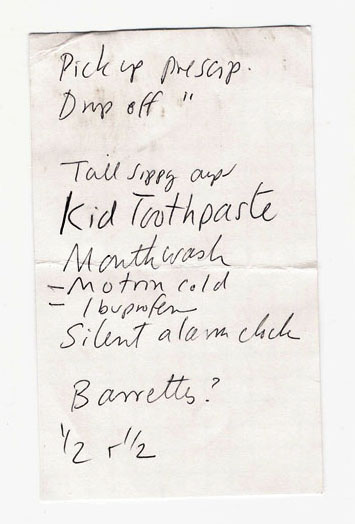 Pick up prescrip.
Drop off "
Tall sippy cups
Kid Toothpaste
Mouthwash
- Motrin cold
= Ibuprofen
Silent alarm clock
Barretts?
1/2 r 1/2